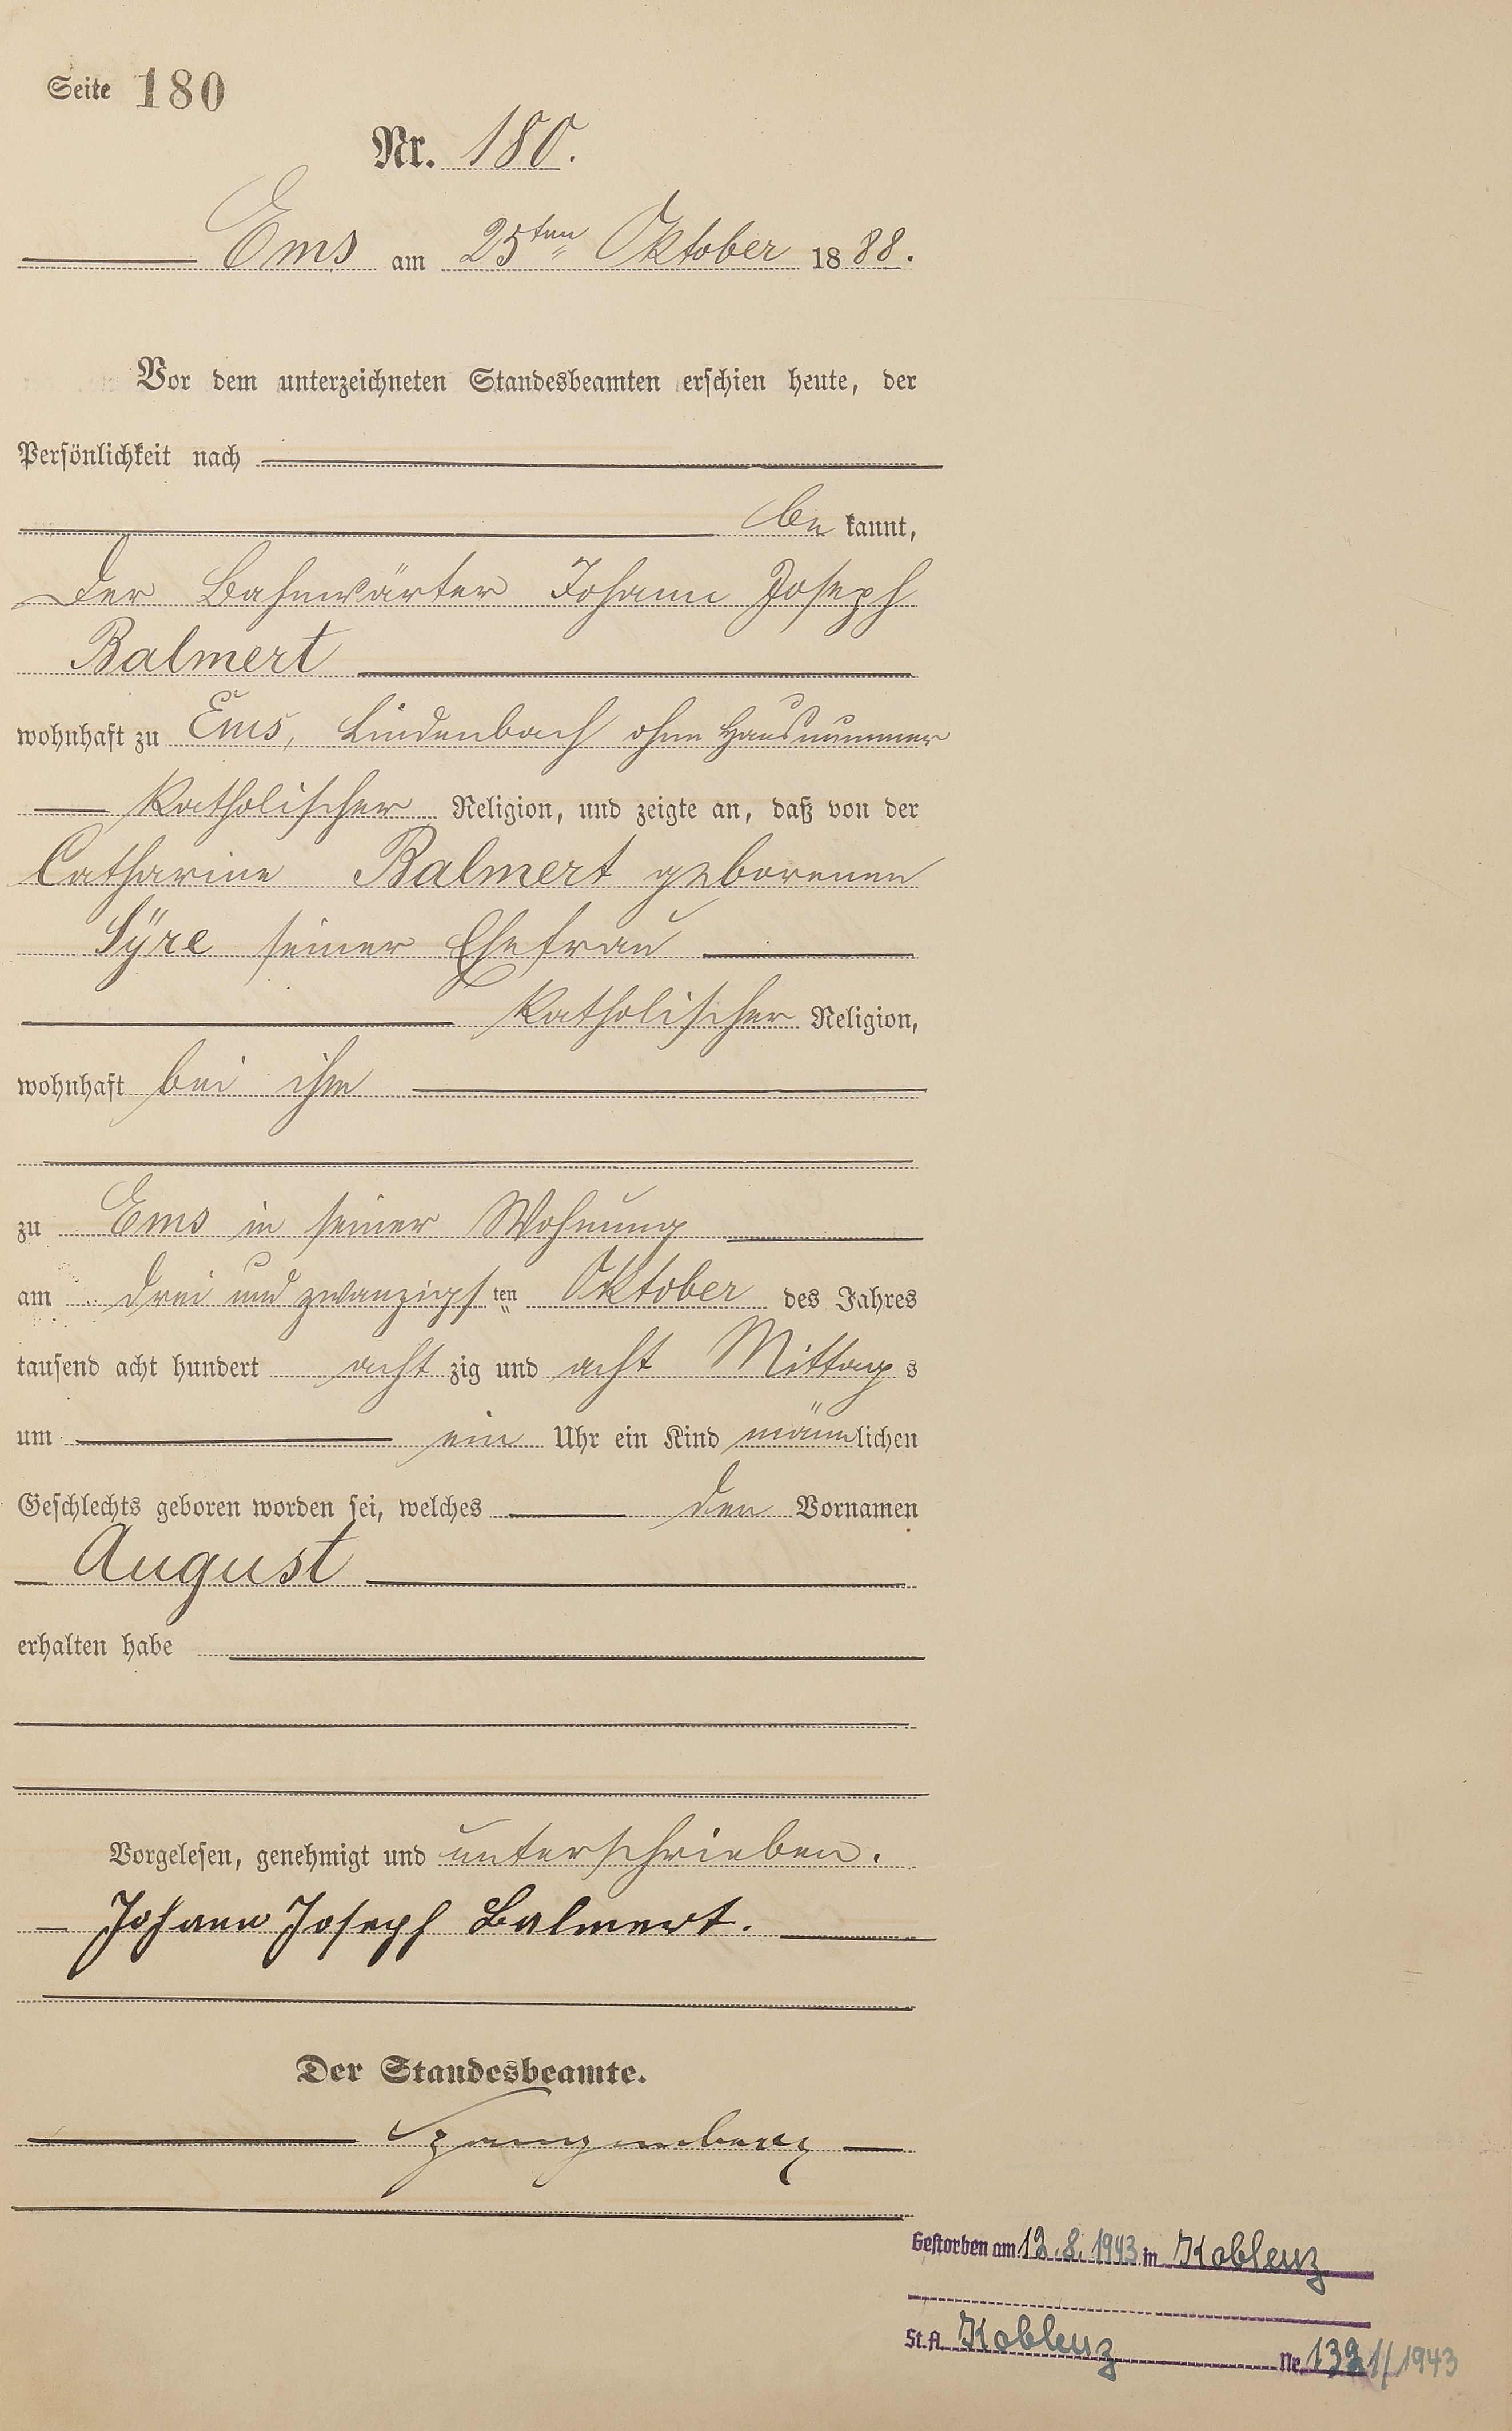 Seite 180
Nr. 180.
Ems am 25ten Oktober 1888.
Vor dem unterzeichneten Standesbeamten erschien heute, der
Persönlichkeit nach
be kannt,
der Bahnwärter Johann Joseph
Balmert
wohnhaft zu Ems, Lindenbach ohne Hausnummer
katholischer Religion, und zeigte an, daß von der
Catharine Balmert geborenen
Syre seiner Ehefrau
katholischer Religion,
wohnhaft bei ihm
zu Ems in seiner Wohnung
am drei und zwanzigsten Oktober des Jahres
tausend acht hundert acht zig und acht Mittags
um ein Uhr ein Kind männlichen
Geschlechts geboren worden sei, welches den Vornamen
August
erhalten habe
Vorgelesen, genehmigt und unterschrieben.
Johann Joseph Balmert.
Der Standesbeamte.
Gestorben am 12.8.1943 in Koblenz
St.A. Koblenz Nr. 1321/1943